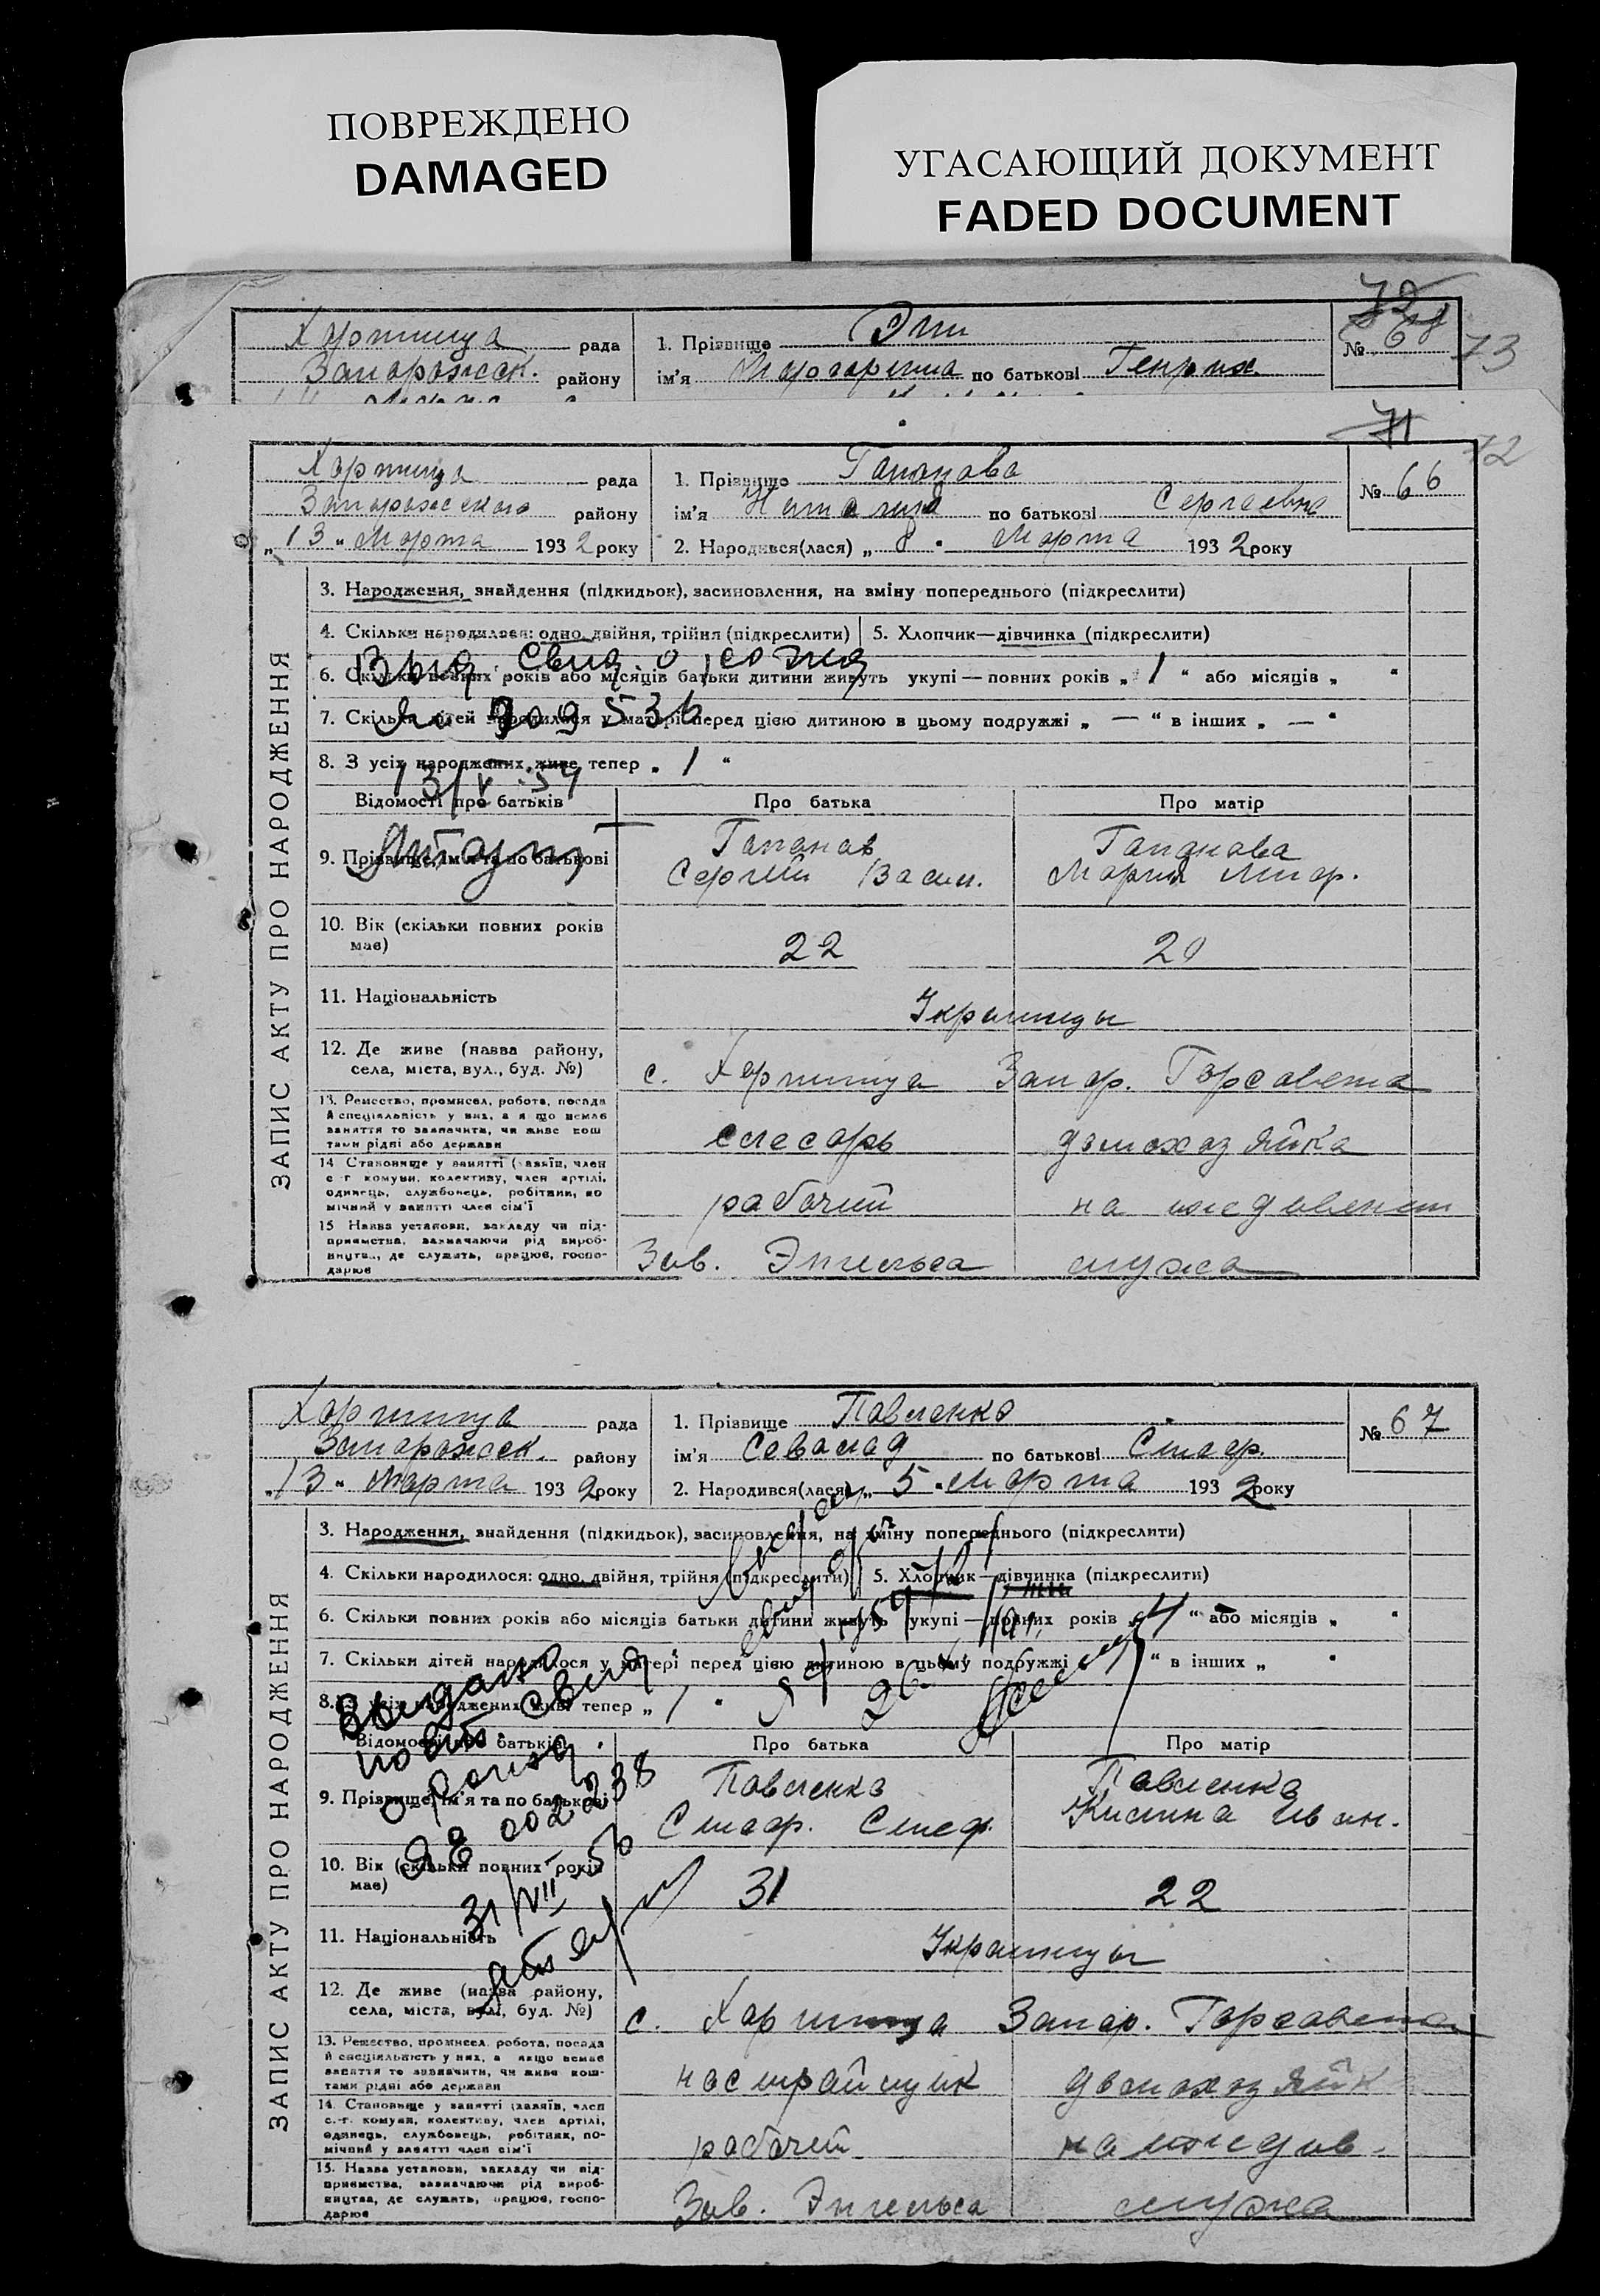 ПОВРЕЖДЕНО
DAMAGED
УГАСАЮЩИЙ ДОКУМЕНТ
FADED DOCUMENT
72
Хортица рада
1. Прізвище
№ 68
73
Запорожск. району
ім'я Маргарита по батькові Генрих.
71
72
Хортица рада
1. Прізвище Гапанова
№ 66
Запорожского району
ім'я Наталия по батькові Сергеевна
„13" Марта 1932 року
2. Народився(лася) „8" Марта 1932 року
ЗАПИС АКТУ ПРО НАРОДЖЕННЯ
3. Народження, знайдення (підкидьок), засиновлення, на зміну попереднього (підкреслити)
4. Скільки народилося: одно, двійня, трійня (підкреслити)
5. Хлопчик—дівчинка (підкреслити)
Выд. свид. о рожд
6. Скільки повних років або місяців батьки дитини живуть укупі — повних років „1" або місяців „ "
7. Скільки дітей народилося у матері перед цією дитиною в цьому подружжі „—" в інших „—"
8. З усіх народжених живе тепер „1"
13/V-54
Відомості про батьків
Про батька
Про матір
9. Прізвище, ім'я та по батькові
Гапанов
Сергій Васил.
Гапанова
Мария
10. Вік (скільки повних років має)
22
20
11. Національність
Украинцы
12. Де живе (назва району, села, міста, вул., буд. №)
с. Хортица Запор. Горсовета
13. Ремество, промисел, робота, посада й спеціяльність у них, а якщо немає заняття то зазначити, чи живе коштами рідні або держави
слесарь
домохозяйка
14 Становище у занятті (хазяїн, член с.-г. комуни, колективу, член артілі, одинець, службовець, робітник, помічний у занятті член сім'ї
рабочий
на иждивении
15 Назва установи, закладу чи підприємства, зазначаючи рід виробництва, де служить, працює, господарює
Зав. Энгельса
мужа
Хортица рада
1. Прізвище Павленко
№ 67
Запорожск. району
ім'я по батькові
„13" Марта 1932 року
2. Народився(лася) „5" Марта 1932 року
ЗАПИС АКТУ ПРО НАРОДЖЕННЯ
3. Народження, знайдення (підкидьок), засиновлення, на зміну попереднього (підкреслити)
4. Скільки народилося: одно, двійня, трійня (підкреслити)
5. Хлопчик—дівчинка (підкреслити)
6. Скільки повних років або місяців батьки дитини живуть укупі — повних років „4" або місяців „ "
7. Скільки дітей народилося у матері перед цією дитиною в цьому подружжі " в інших „ "
8. З усіх народжених живе тепер „1"
Выдано
повт. свид.
о рожд
002238
31/VII-56
Відомості про батьків
Про батька
Про матір
9. Прізвище, ім'я та по батькові
Павленко
Павленко
Иван.
10. Вік (скільки повних років має)
31
22
11. Національність
Украинцы
12. Де живе (назва району, села, міста, вул., буд. №)
с. Хортица Запор. Горсовета
13. Ремество, промисел, робота, посада й спеціяльність у них, а якщо немає заняття то зазначити, чи живе коштами рідні або держави
настрайщик
домохозяйк
14. Становище у занятті (хазяїн, член с.-г. комуни, колективу, член артілі, одинець, службовець, робітник, помічний у занятті член сім'ї
рабочий
на иждив.
15. Назва установи, закладу чи підприємства, зазначаючи рід виробництва, де служить, працює, господарює
Зав. Энгельса
мужа